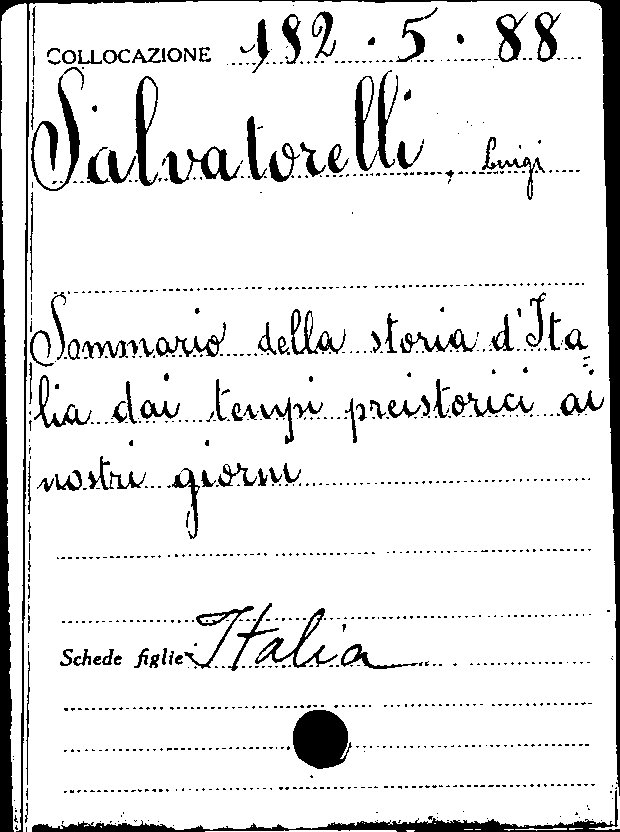 COLLOCAZIONE 182.5.88
Salvatorelli, Luigi
Sommario della storia d'Ita=
lia dai tempi preistorici ai
nostri giorni
Schede figlie: Italia